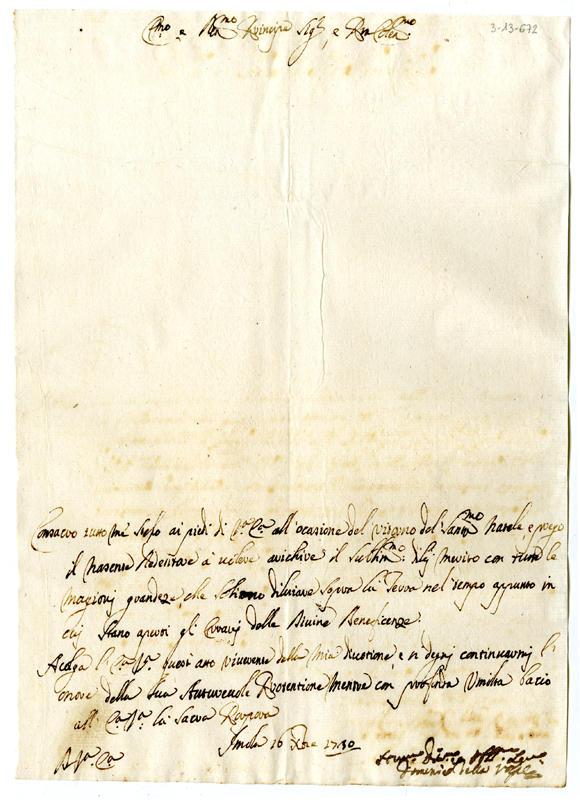 3-13-672
E.mo e R.mo Principe Sig.r e P.ron Colen.mo
Consacro tutto me stesso ai piedi di V.ra E.za all'ocasione del ritorno del Sant.mo Natale e prego
il nascente Redentore a volere arichire il di lei merito con tutte le
magiori grandeze, che Sturno diluviare sopra la Terra nel tempo appunto in
cui Stano aperti gli Erarij delle Divine Beneficenze.
Acolga l'E.za V.ra questo atto riverente della mia divotione e si degnj continuarmj l'
onore della Sua Autorevole Protentione mentre con profonda Umiltà bacio
all'E.za V.ra la Sacra Porpora
Imola 16 Xbre 1730
D V.ra E.za